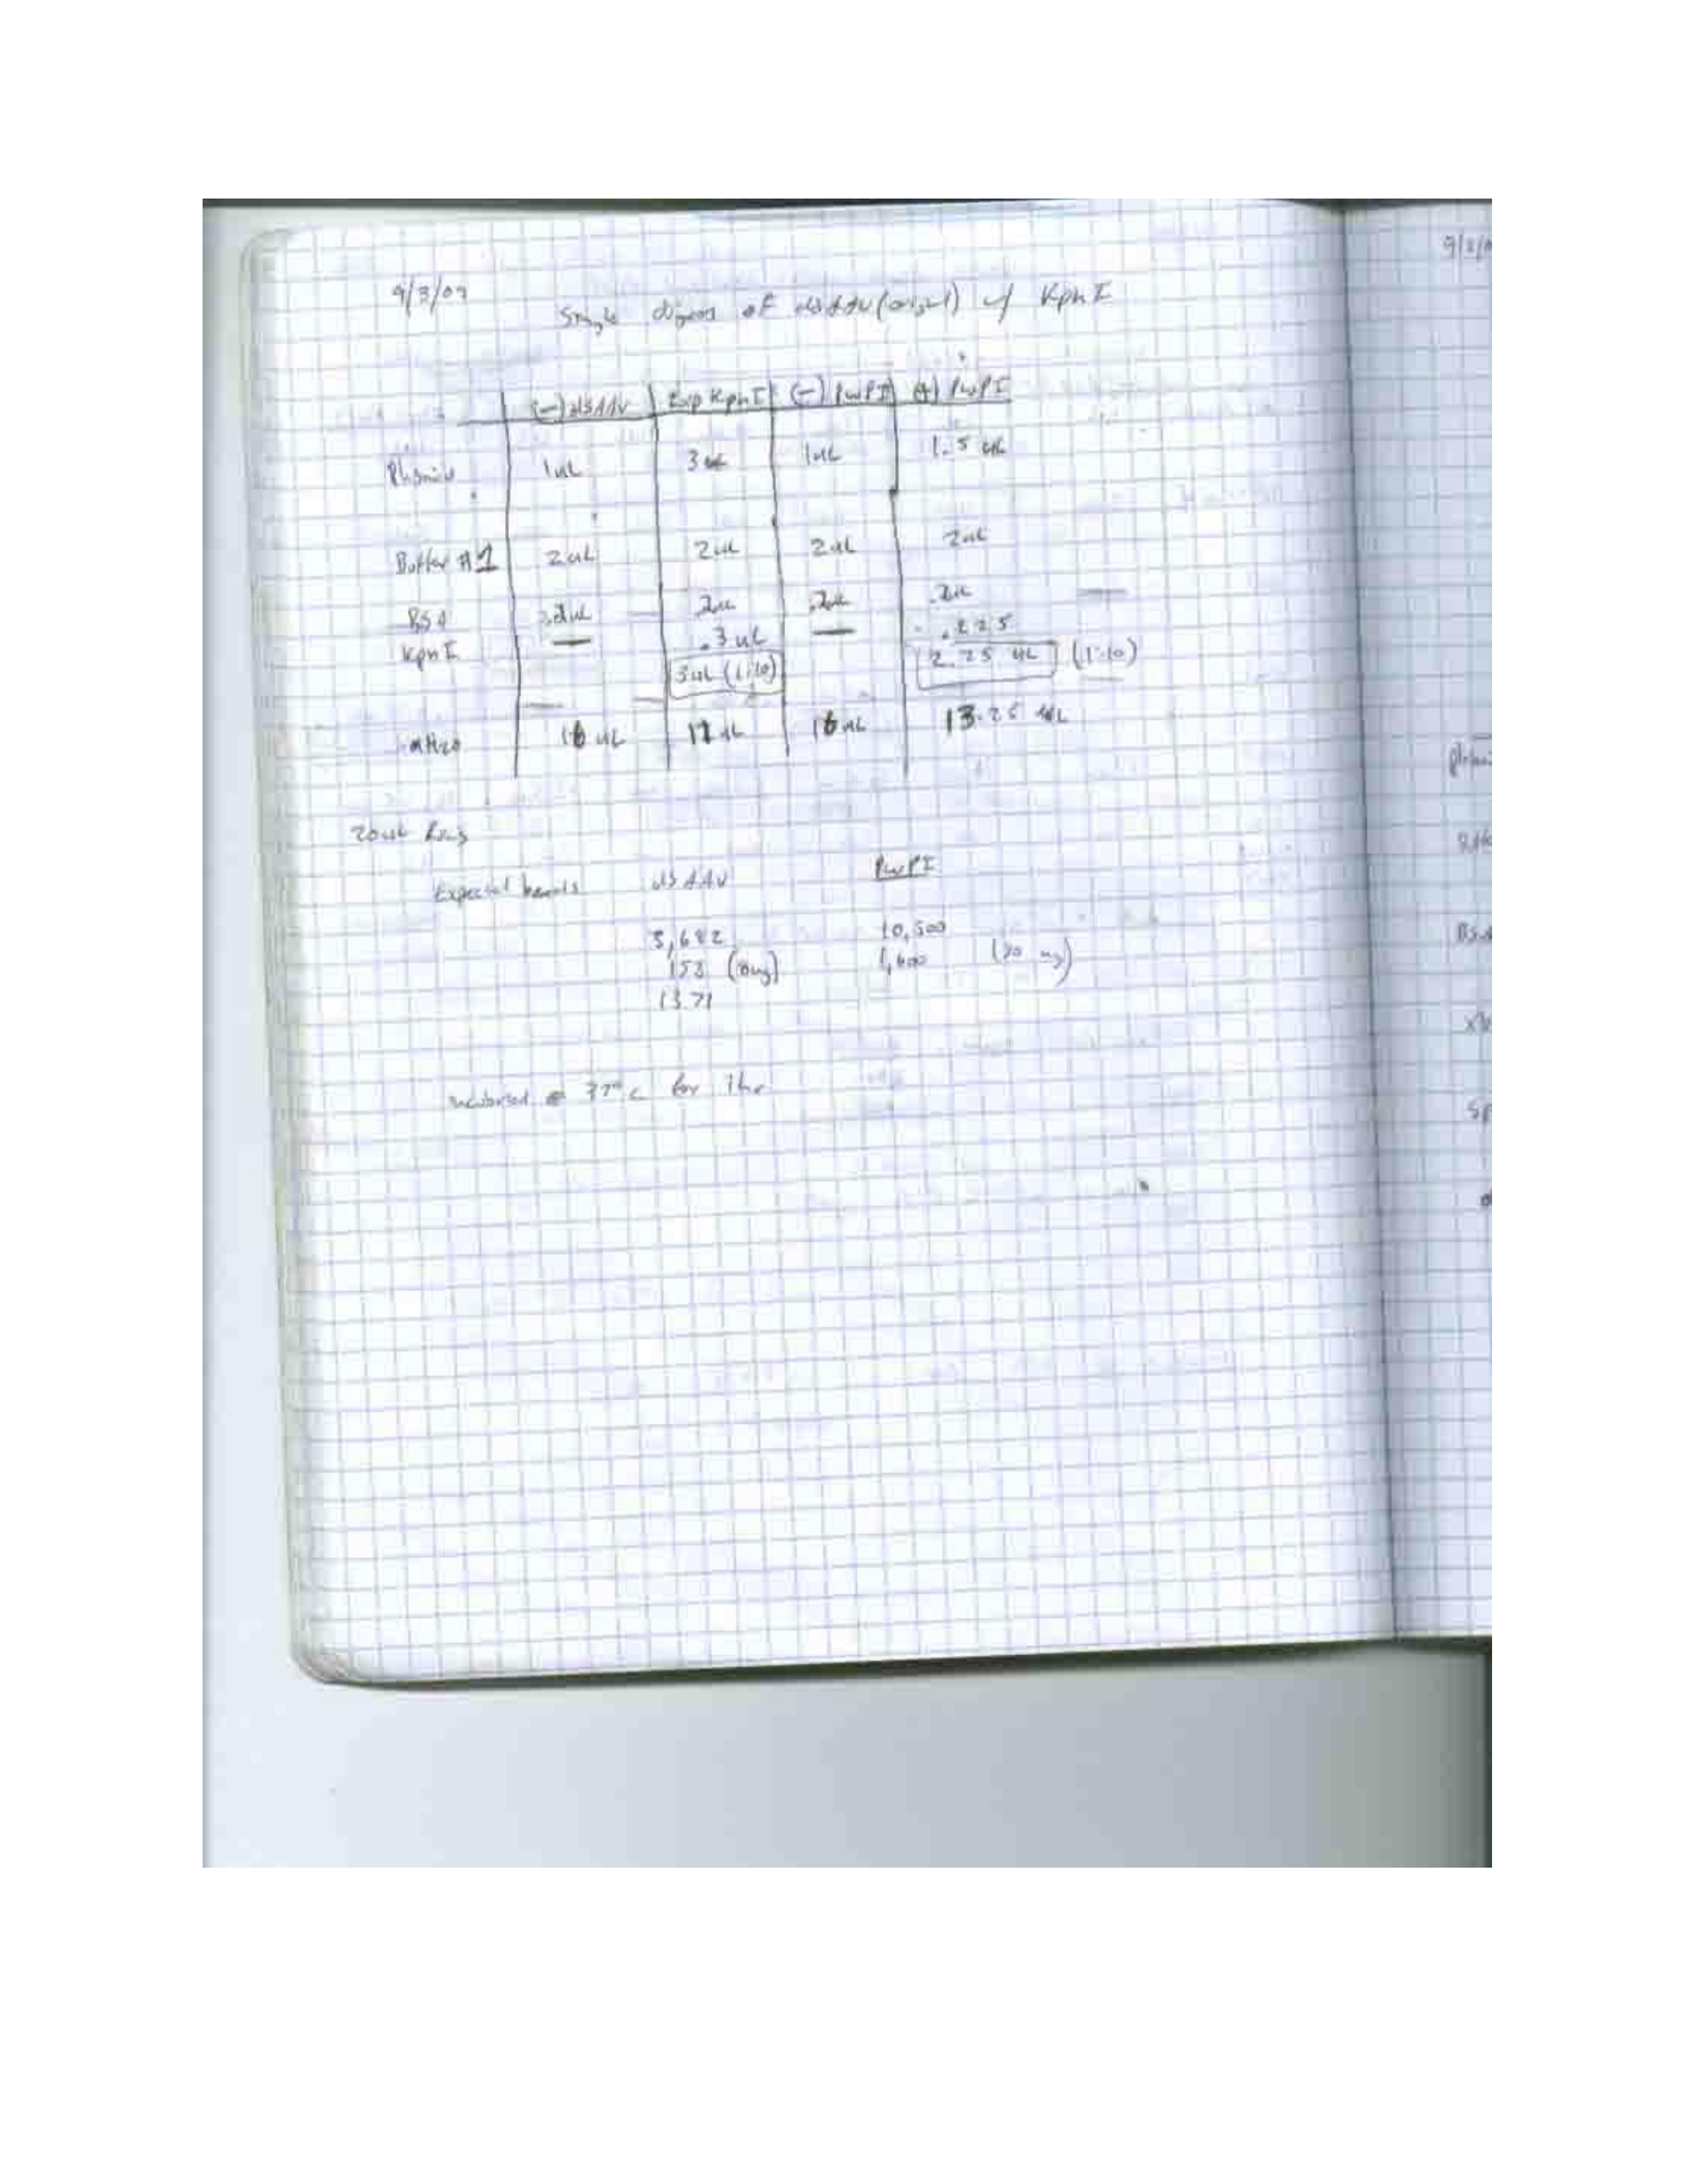 9/3/09
Single digest of dsAAV (original) w/ KpnI
(-) dsAAV Exp KpnI (-) PwPI (+) PwPI
Plasmid 1uL 3uL 1uL 1.5 uL
Buffer #1 2uL 2uL 2uL 2uL
BSA .2uL .2uL .2uL .2uL
KpnI — .3uL — .225
3uL (1:10) 2.25 uL (1:10)
16 uL 11 uL 16 uL 13.25 uL
20uL
Expected bands dsAAV PwPI
5,682 10,500
153 1,600
1371
incubated @ 37°C for 1hr
9/8/